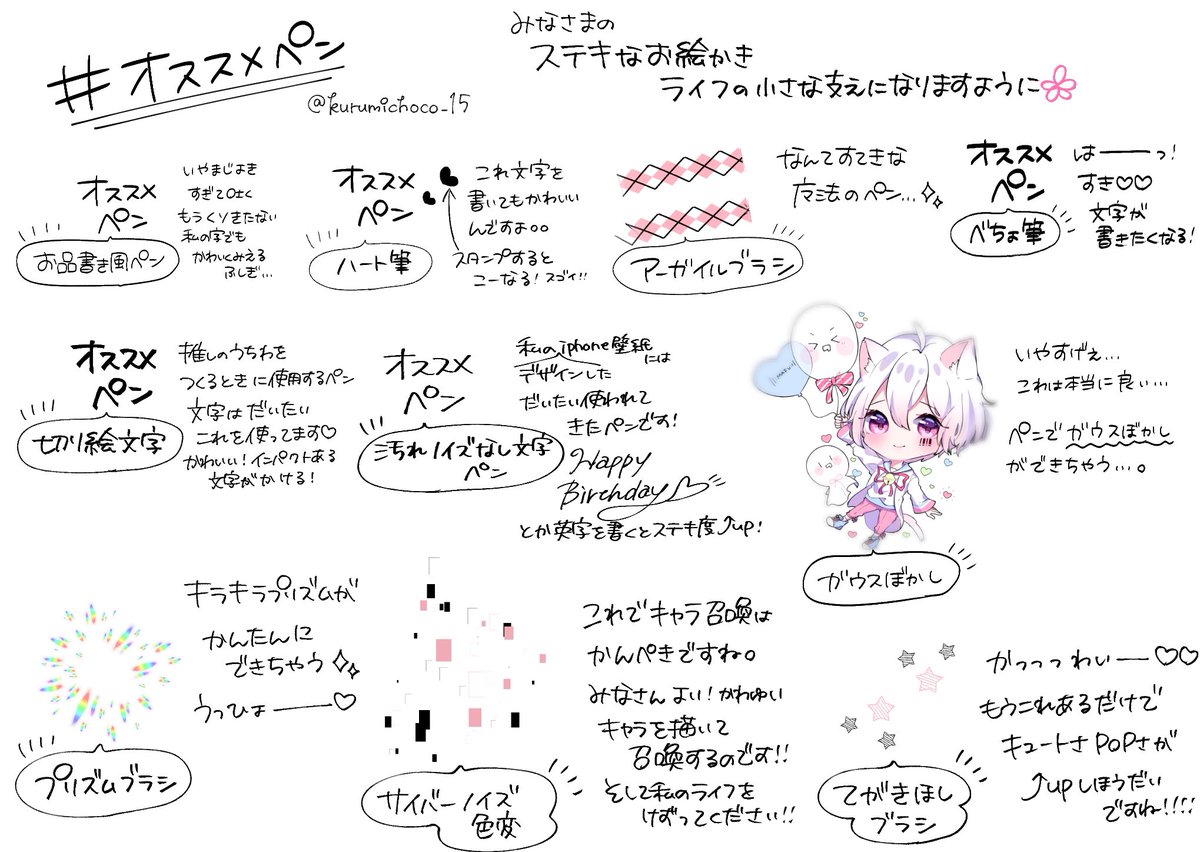 #オススメペン
@kurumichoco_15
みなさまの
ステキなお絵かき
ライフの小さな支えになりますように
オススメ
ペン
お品書き風ペン
いやまじよき
すぎて0比く
もうくりきたない
私の字でも
かわいくみえる
ふしぎ…
オススメ
ペン
ハート筆
これ文字を
書いてもかわいい
んですよ。。
スタンプすると
こーなる!スゴイ!!
アーガイルブラシ
なんてすてきな
魔法のペン…
オススメ
ペン
べちょ筆
はーーっ!
すき♡♡
文字が
書きたくなる!
オススメ
ペン
切り絵文字
推しのうちわを
つくるときに使用するペン
文字はだいたい
これを使ってます♡
かわいい!インパクトある
文字がかける!
オススメ
ペン
汚れノイズなし文字
ペン
私のiphone壁紙
には
デザインした
だいたい使われて
きたペンです!
Happy
Birthday
とか英字を書くとステキ度↑up!
ガウスぼかし
いやすげぇ…
これは本当に良い…
ペンでガウスぼかし
ができちゃう…。
プリズムブラシ
キラキラプリズムが
かんたんに
できちゃう
うっひょーーー♡
サイバーノイズ
色変
これでキャラ召喚は
かんぺきですね。
みなさんよい!かわゆい
キャラを描いて
召喚するのです!!
そして私のライフを
けずってください!!
てがきほし
ブラシ
がっっっわいー♡♡
もうこれあるだけで
キュートさPOPさが
↑upしほうだい
ですね!!!!